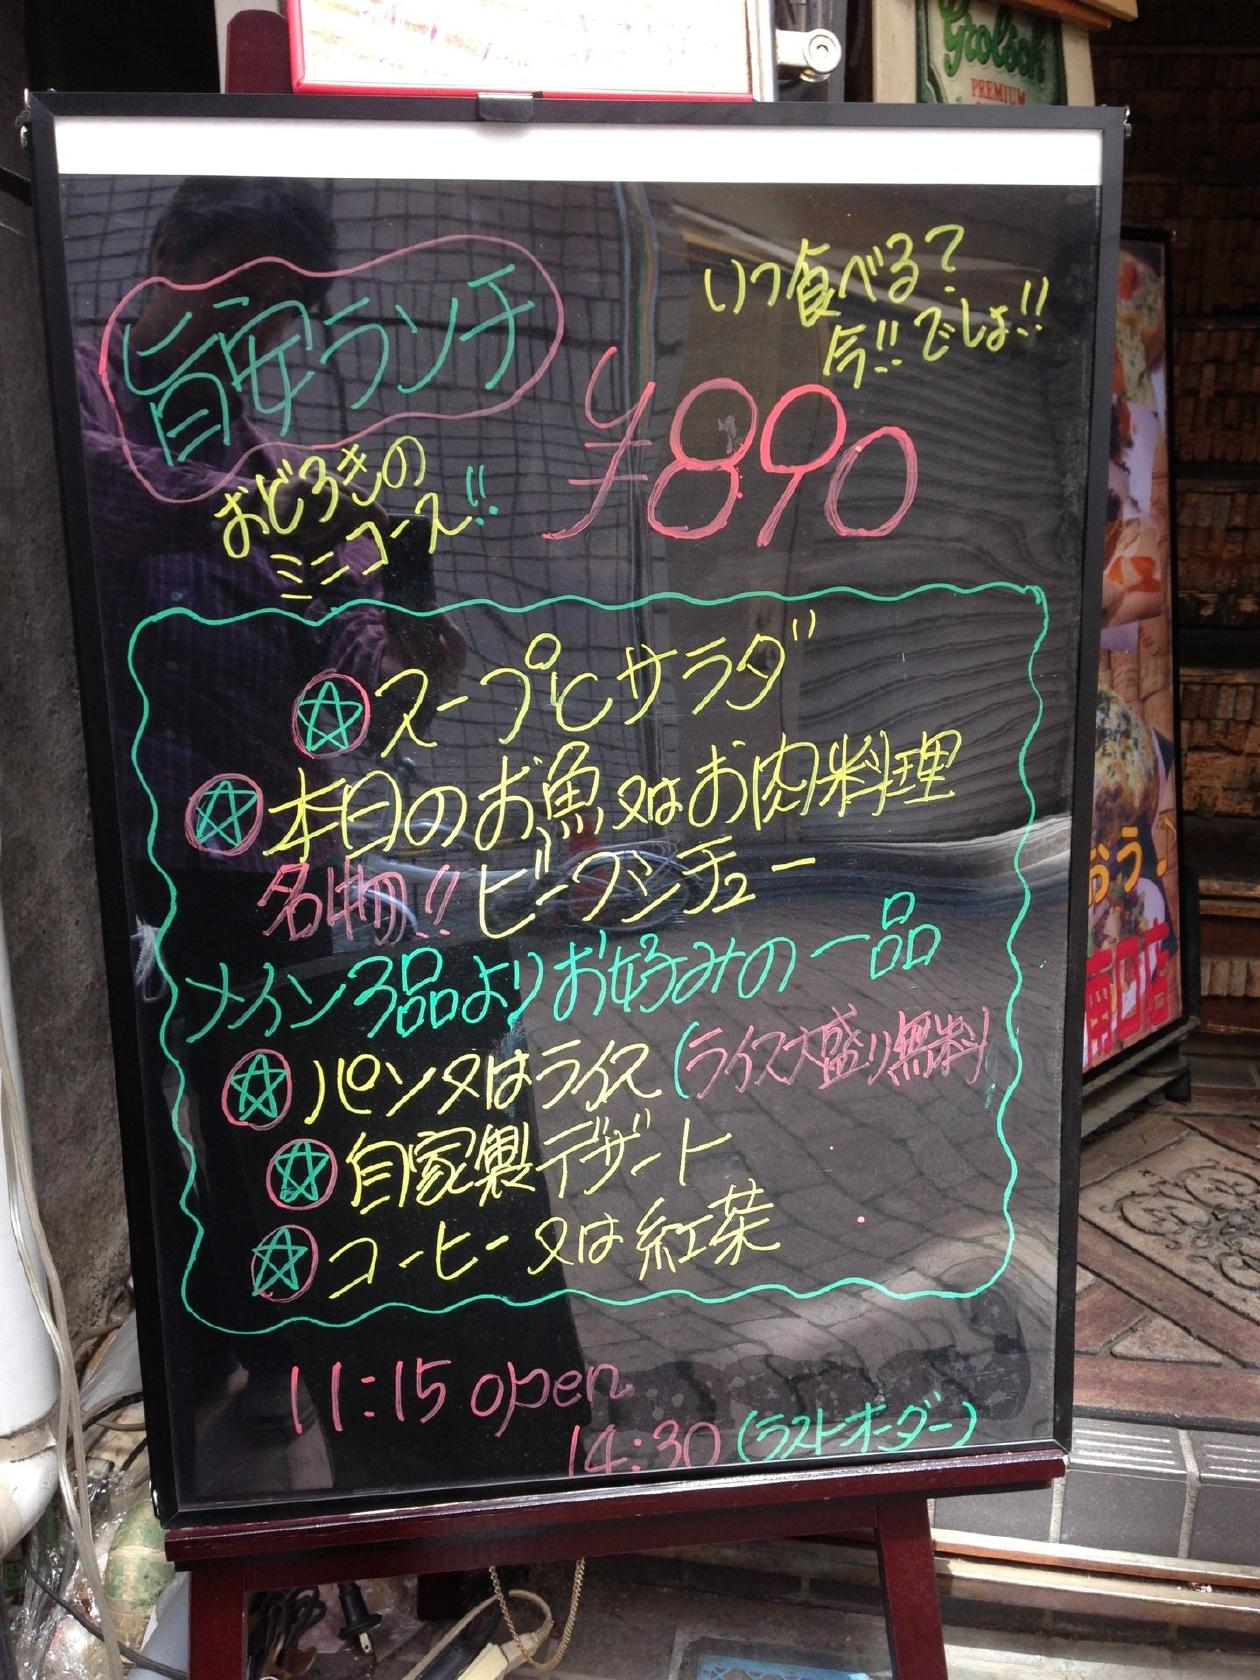 Grolsch
PREMIUM
旨安ランチ
いつ食べる?
今!!でしょ!!
¥890
おどろきの
ミニコース!!
スープとサラダ
本日のお魚又はお肉料理
名物!!ビーフシチュー
メイン3品よりお好みの一品
パン又はライス(ライス大盛り無料)
自家製デザート
コーヒー又は紅茶
11:15 open
14:30(ラストオーダー)